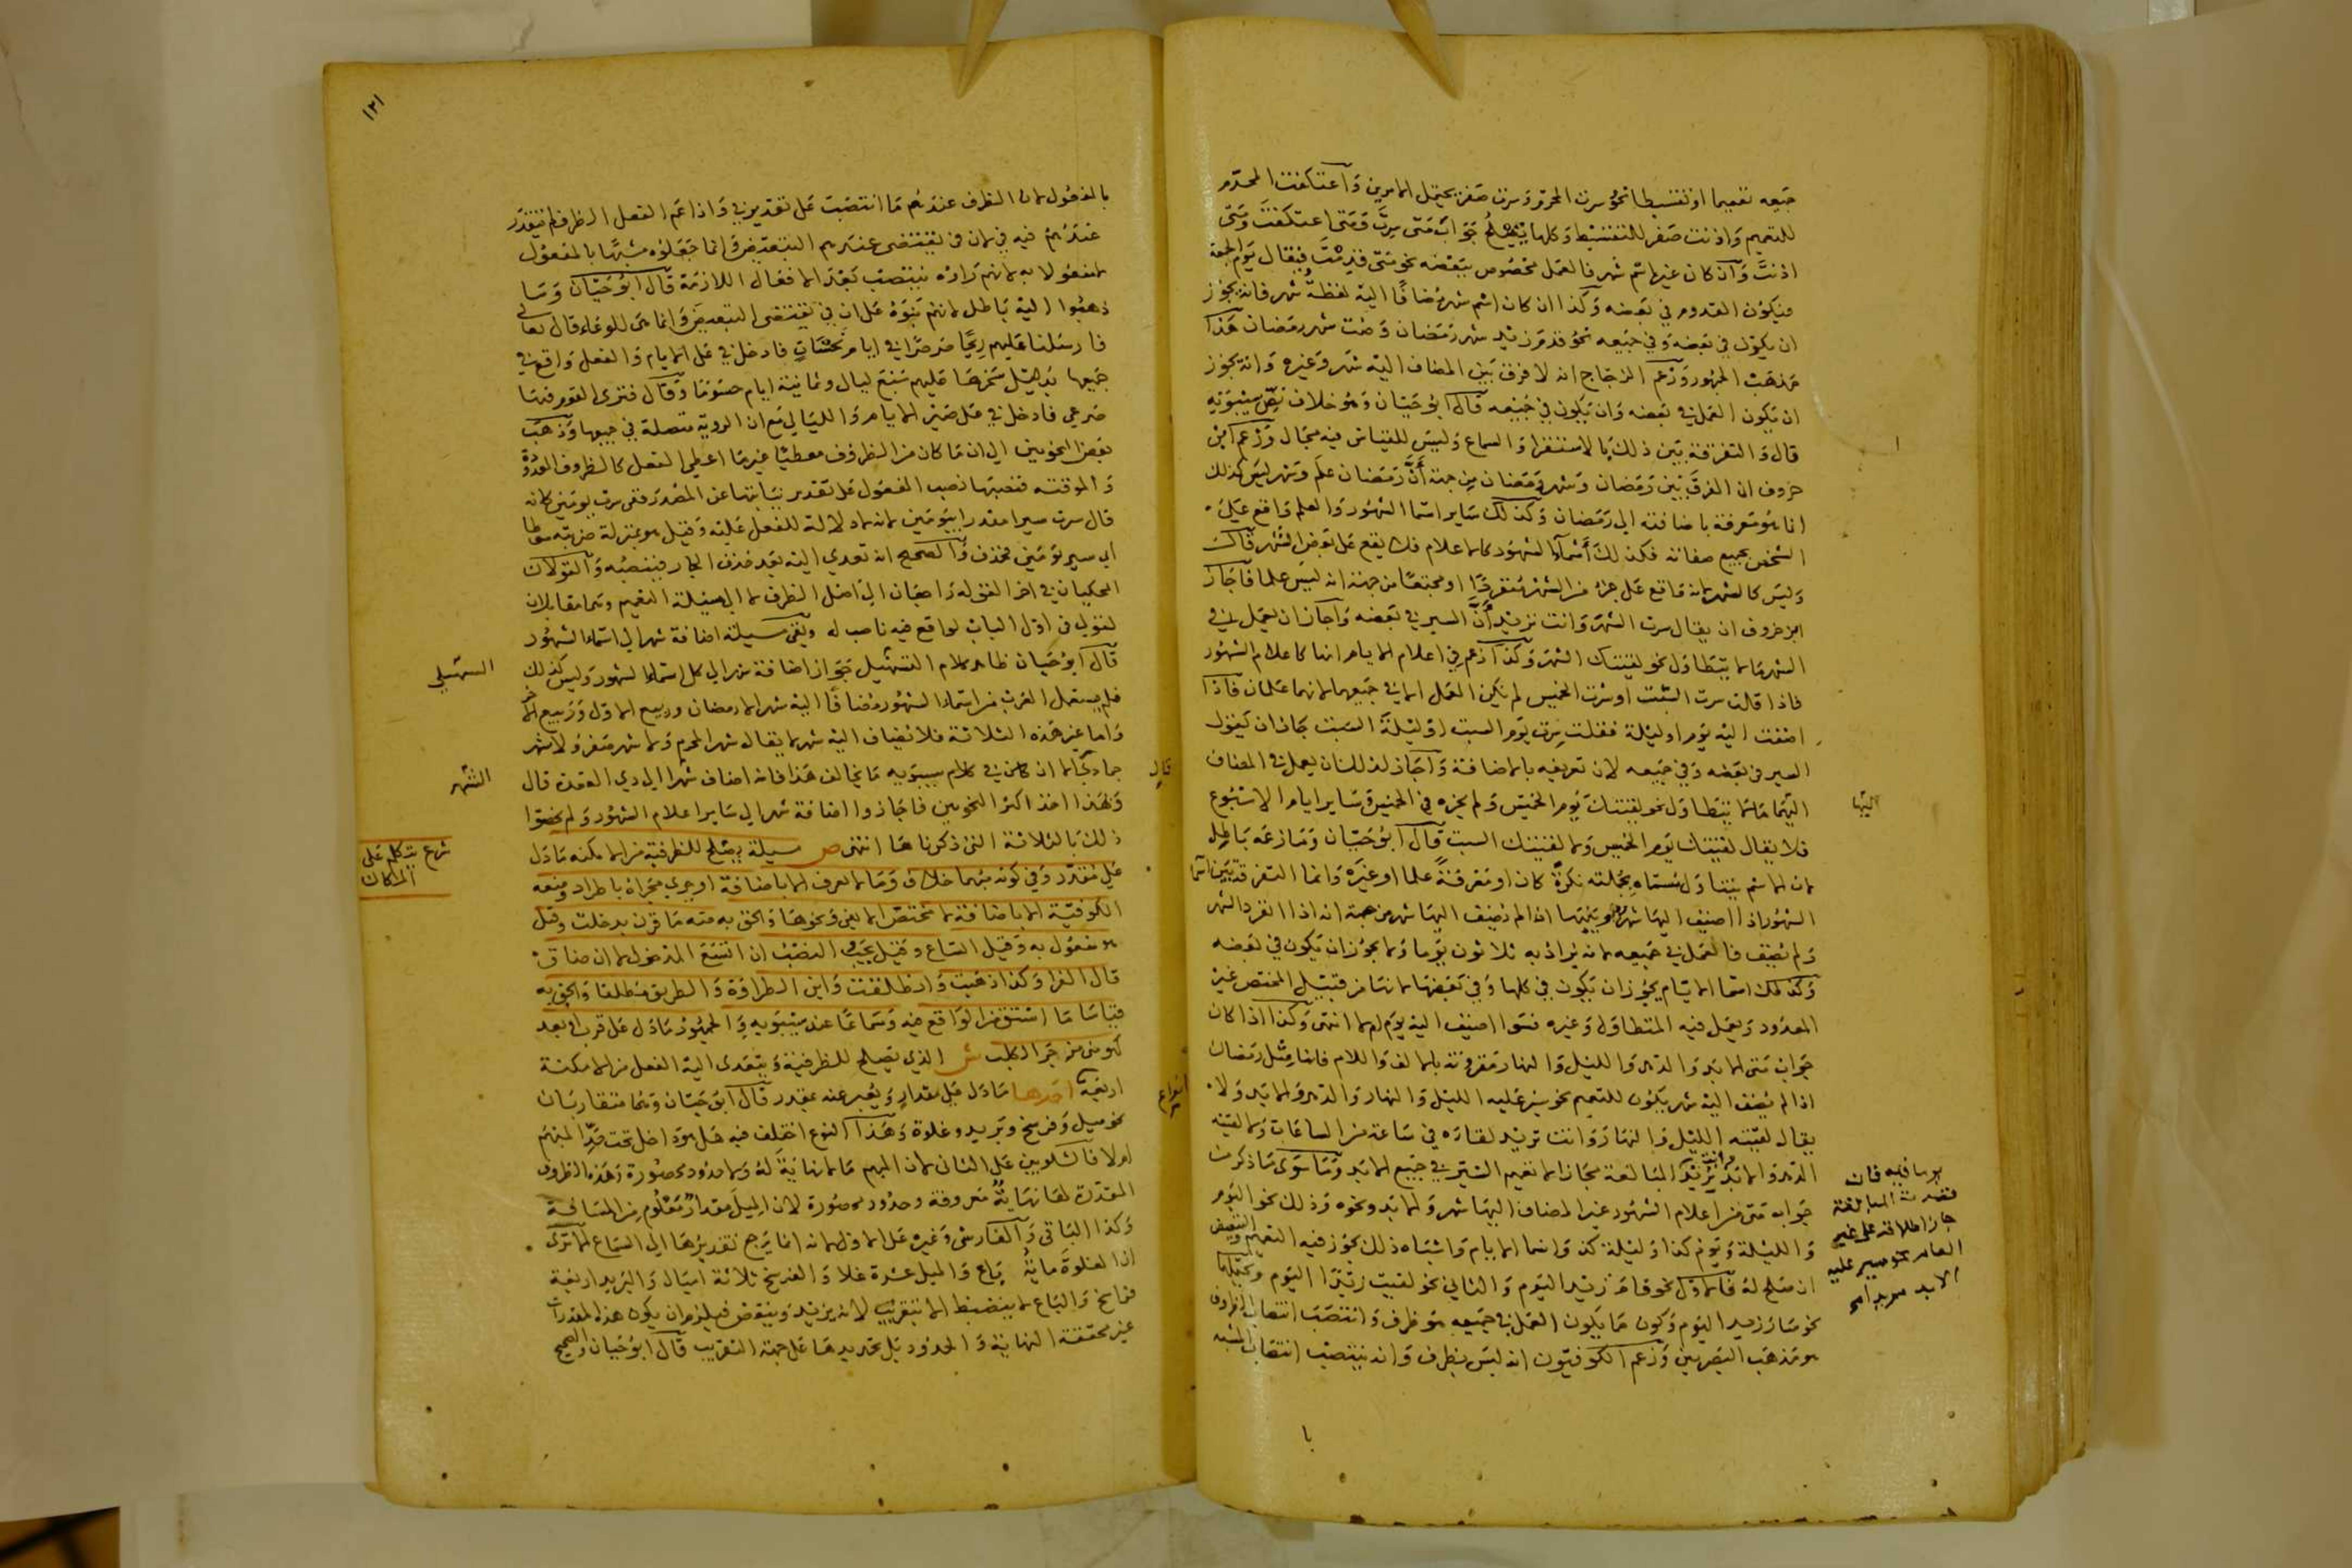 جميعه تعميما او تقسيطا نحو سرت المحرم وسرت صفر يحتمل الامرين واعتكفت المحرم
للتعميم واذنت صفر للتقسيط وكلها يصلح جواب متى سرت ومتى اعتكفت ومتى
اذنت وان كان غير اسم شهر فالعمل مخصوص ببعضه نحو متى قدمت فيقال يوم الجمعة
فيكون القدوم في بعضه وكذا ان كان اسم شهر مضافا اليه لفظة شهر فانه يجوز
ان يكون في بعضه وفي جميعه نحو قدم زيد شهر رمضان وصمت شهر رمضان هذا
مذهب الجمهور وزعم الزجاج انه لا فرق بين المضاف اليه شهر وغيره وانه يجوز
ان يكون العمل في بعضه وان يكون في جميعه قال ابو حيان وهو خلاف نص سيبويه
قال والتفرقة بين ذلك بالاستقراء والسماع وليس للقياس فيه مجال وزعم ابن
خروف ان الفرق بين رمضان وشهر رمضان من جهة أن رمضان علم وشهر ليس كذلك
انما هو معرفة باضافته الى رمضان وكذلك ساير اسما الشهور والعلم واقع على
الشخص بجميع صفاته فكذلك أسماء الشهور كالاعلام فلا يقع على بعض الشهر قال
وليس كالشهر لانه واقع على جزء من الشهر منفردا او مجتمعا من جهة انه ليس علما فاجاز
ابن خروف ان يقال سرت الشهر وانت تريد أن السير في بعضه واجاز ان يعمل في
الشهر ما لا يتطاول نحو لقيتك الشهر وكذا زعم في اعلام الايام انها كاعلام الشهور
فاذا قالت سرت السبت او سرت الخميس لم يكن العمل الا في جميعهما لانهما علمان فاذا
اضفت اليه يوم او ليلة فقلت سرت يوم السبت او ليلة السبت جاز ان يكون
السير في بعضه وفي جميعه لان تعريفه بالاضافة واجاز لذلك ان يعمل في المضاف
اليهما ما لا يتطاول نحو لقيتك يوم الخميس ولم يجزه في الخميس وساير ايام الاسبوع
فلا يقال لقيتك يوم الخميس ولا لقيتك السبت قال ابو حيان وما زعمه باطل
لان الاسم يتناول مسماه بجملته نكرة كان او معرفة علما او غيره وانما التفرقة بين اسما
الشهور اذا اضيف اليها شهر وبينها اذا لم يضف اليها شهر من جهة انه اذا انفرد الشهر
ولم يضف فالعمل في جميعه لانه يراد به ثلاثون يوما ولا يجوز ان يكون في بعضه
وكذلك اسما الايام يجوز ان يكون في كلها وفي بعضها لانها من قبيل المختص غير
المعدود ويعمل فيه المتطاول وغيره سوا اضيف اليه يوم ام لا انتهى وكذا اذا كان
جواب متى الابد والدهر والليل والنهار مقرونة بالالف واللام فانها مثل رمضان
اذا لم يضف اليه شهر يكون للتعميم نحو سير عليه الليل والنهار والدهر والابد ولا
يقال لقيته الليل والنهار وانت تريد لقاءه في ساعة من الساعات ولا لقيته
الدهر والابد وانت تريد المبالغة مجازا لا تعميم السير في جميع الابد وما سوى ما ذكر من
جواب متى من اعلام الشهور غير المضاف اليها شهر والابد ونحوه وذلك نحو اليوم
والليلة ويوم كذا وليلة كذا واسما الايام واشباه ذلك يجوز فيه التعميم والتبعيض
ان صلح له فالاول نحو قام زيد اليوم والثاني نحو لقيت زيدا اليوم ويحتملهما
نحو سار زيد اليوم وكون ما يكون العمل في جميعه هو ظرف وانتصب انتصاب الظروف
هو مذهب البصريين وزعم الكوفيون انه ليس بظرف وانه ينتصب انتصاب المشبه
اليها
يوما قيه فان
قصدت المبالغة
جاز اطلاقه على غير
العام نحو سير عليه
الابد
با
١٢١
بالمفعول لان الظرف عندهم ما انتصب على تقدير في واذا عم الفعل الظرف لم يتقدر
عندهم فيه في لان في تقتضي عندهم التبعيض وانما جعلوه مشبها بالمفعول
لا مفعولا به لانهم راوه ينتصب بعد الافعال اللازمة قال ابو حيان وما
ذهبوا اليه باطل لانهم بنوه على ان في تقتضي التبعيض وانما هي للوعاء قال تعالى
فارسلنا عليهم ريحا صرصرا في ايام نحسات فادخل في على الايام والفعل واقع في
جميعها بدليل سخرها عليهم سبع ليال وثمانية ايام حسوما وقال فترى القوم فيها
صرعى فادخل في على ضمير الايام والليالي مع ان الروية متصلة في جميعها وذهب
بعض النحويين الى ان ما كان من الظروف معطيا غير ما اعطى الفعل كالظروف المعدودة
والموقتة فنصبها نصب المفعول على تقدير نيابتها عن المصدر ففي سرت يومين كانه
قال سرت سيرا مقدرا بيومين لانه لا دلالة للفعل عليه وقيل هو بمنزلة ضربته سوطا
اي سير يومين فحذف والصحيح انه تعدى اليه بعد حذف الجار فينصبه والقولان
المحكيان في اخر القولة راجعان الى اصل الظرف لا الى مسيلة التعميم وهما مقابلان
لقولي في اول الباب لواقع فيه ناصب له وبقي مسيلة اضافة شهر الى اسماء الشهور
قال ابو حيان ظاهر كلام التسهيل جواز اضافة شهر الى كل اسماء الشهور وليس كذلك
فلم يستعمل العرب من اسماء الشهور مضافا اليه شهر الا رمضان وربيع الاول وربيع الاخر
واما غير هذه الثلاثة فلا يضاف اليه شهر لا يقال شهر المحرم ولا شهر صفر ولا شهر
جمادى الا ان في كلام سيبويه ما يخالف هذا فانه اضاف شهرا الى ذي القعدة قال
ولهذا اخذ اكثر النحويين فاجازوا اضافة شهر الى ساير اعلام الشهور ولم يخصوا
ذلك بالثلاثة التي ذكرناها انتهى ص مسيلة يصلح للظرفية من الامكنة ما دل
على مقدر وفي كونه مبهما خلاف وما لا يعرف الا باضافة او جرى مجراه باطراد ومنعه
الكوفية الا باضافة لا مختص الا لعين ونحوها والحق به منه ما قرن بدخلت وقيل
هو مفعول به وقيل اتساع وقيل يجب النصب ان اتسع المدخول لا ان ضاق
قال الفرا وكذا ذهبت وانطلقت وابن الطراوة والطريق مطلقا والحق به
قياسا ما اشتق من الواقع فيه وسماعا عند سيبويه والجمهور ما دل على قرب او بعد
كهو مني مزجر الكلب ش الذي يصلح للظرفية ويتعدى اليه الفعل من الامكنة
اربعة انواع احدها ما دل على مقدار ويعبر عنه بمقدر قال ابو حيان وهما متقاربان
نحو ميل وفرسخ وبريد وغلوة وهذا النوع اختلف فيه هل هو داخل تحت حد المبهم
ام لا فالشلوبين على الثاني لان المبهم ما لا نهاية له ولا حدود محصورة وهذه الظروف
المقدرة لها نهاية معروفة وحدود محصورة لان الميل مقدار معلوم من المسافة
وكذا الباقي والفارسي وغيره على الاول لانه انما يرجع تقديرها الى السماع الا ترى
اذا الغلوة ماية باع والميل عشرة غلا والفرسخ ثلاثة اميال والبريد اربعة
فراسخ والباع لا ينضبط الا بتقريب لانه يزيد وينقص فيلزم ان يكون هذه المقدرات
غير محققة النهاية والحدود بل تحديدها على جهة التقريب قال ابو حيان والصحيح
السهيلي
الشهر
شرع يتكلم على
المكان
قال
انواع